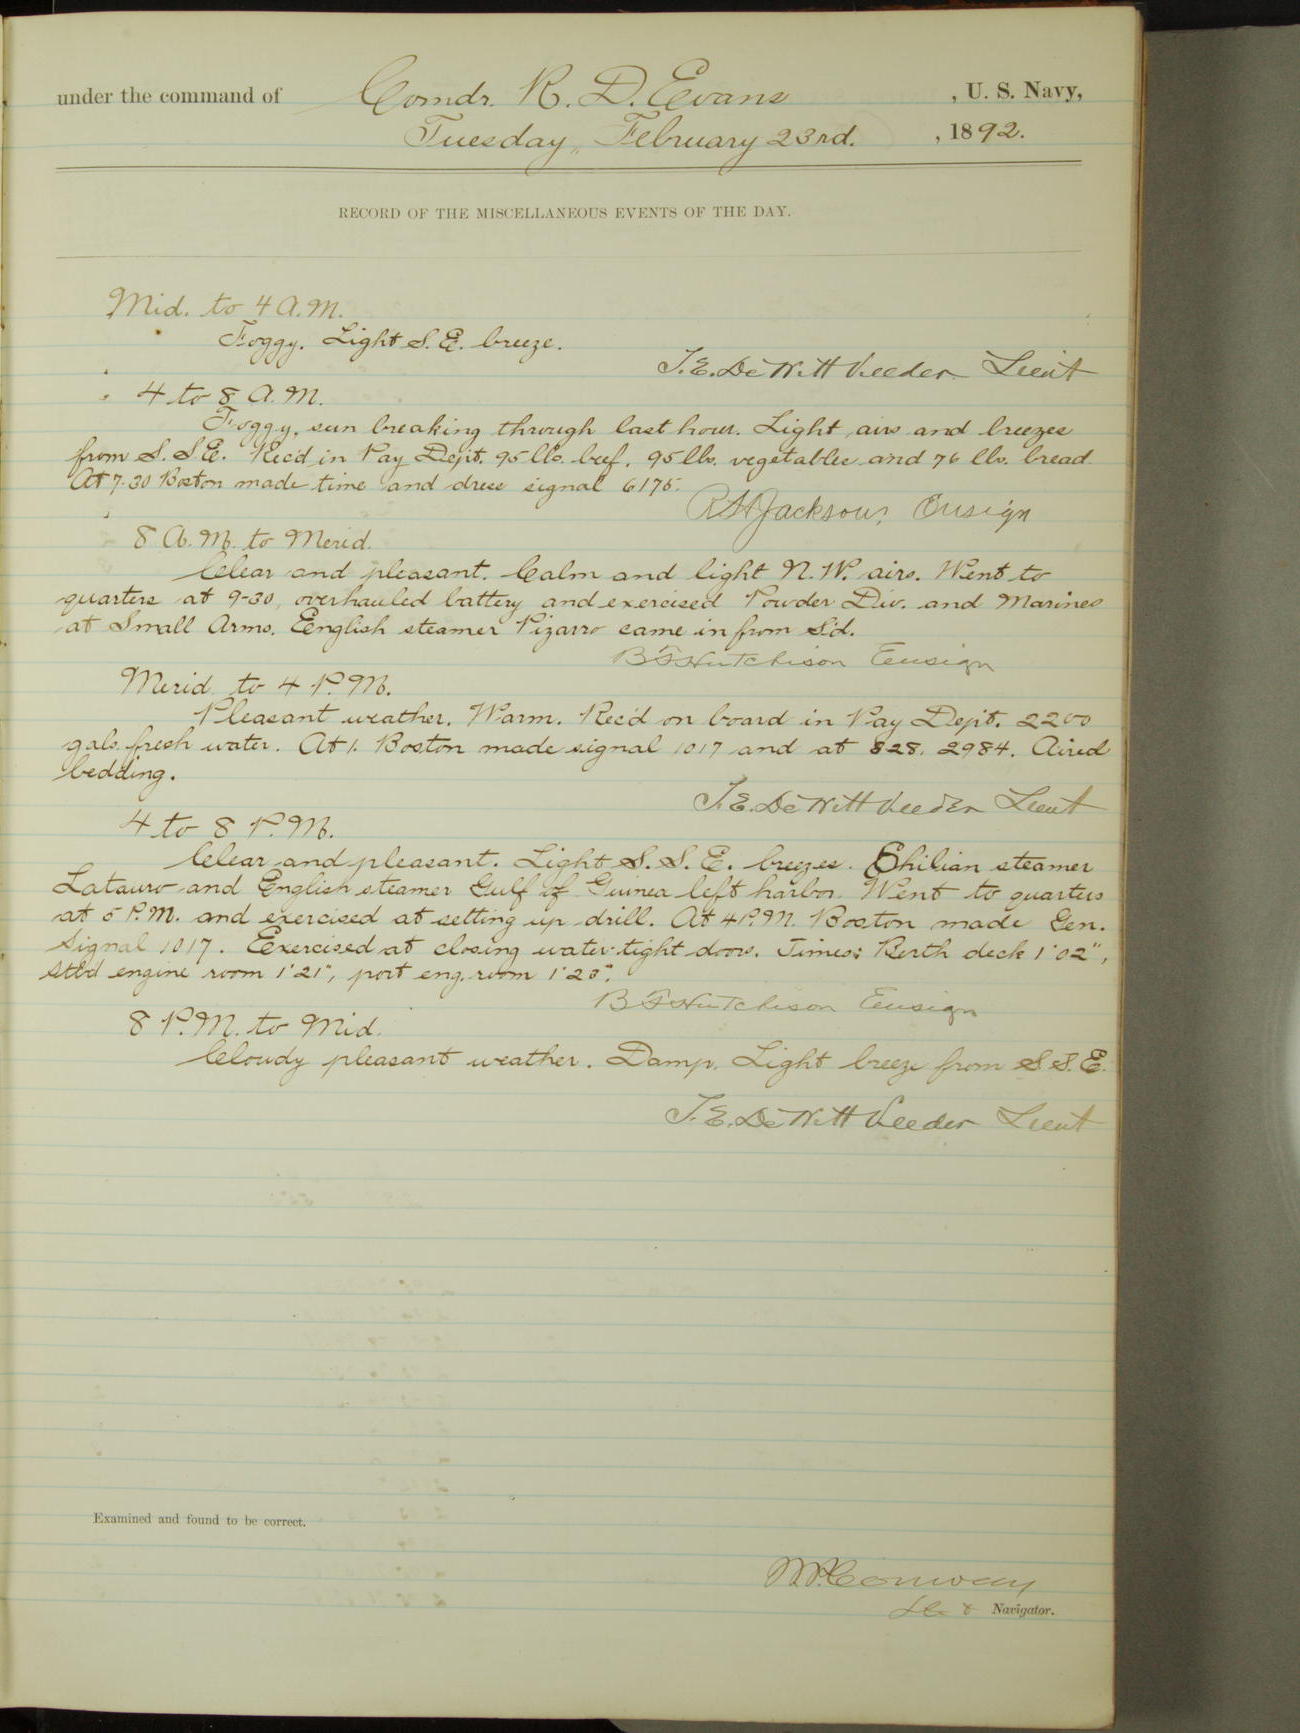 under the command of Comdr. R. D. Evans , U. S. Navy,
Tuesday, February 23rd. , 1892.
RECORD OF THE MISCELLANEOUS EVENTS OF THE DAY.
Mid. to 4 A.M.
Foggy. Light S.E. breeze.
T.E. DeWitt Veeder Lieut
4 to 8 A.M.
Foggy, sun breaking through last hour. Light airs and breezes
from S.S.E. Rec'd in Pay Dept. 95 lbs. beef, 95 lbs. vegetables and 76 lbs. bread.
At 7.30 Boston made time and dress signal 6175.
R H Jackson, Ensign
8 A.M. to Merid.
Clear and pleasant. Calm and light N.W. airs. Went to
quarters at 9-30, overhauled battery and exercised Powder Div. and Marines
at Small Arms. English steamer Pizarro came in from S'd.
B F Hutchison Ensign
Merid. to 4 P.M.
Pleasant weather. Warm. Rec'd on board in Pay Dept. 2200
gals. fresh water. At 1. Boston made signal 1017 and at 828, 2984. Aired
bedding.
T.E. DeWitt Veeder Lieut
4 to 8 P.M.
Clear and pleasant. Light S.S.E. breezes. Chilian steamer
Latauro and English steamer Gulf of Guinea left harbor. Went to quarters
at 5 P.M. and exercised at setting up drill. At 4 P.M. Boston made Gen.
Signal 1017. Exercised at closing water-tight doors. Times: Berth deck 1'02",
stb'd engine room 1'21", port eng. room 1'23".
B F Hutchison Ensign
8 P.M. to Mid.
Cloudy pleasant weather. Damp. Light breeze from S.S.E.
T.E. DeWitt Veeder Lieut
Examined and found to be correct.
W P Conway
Navigator.